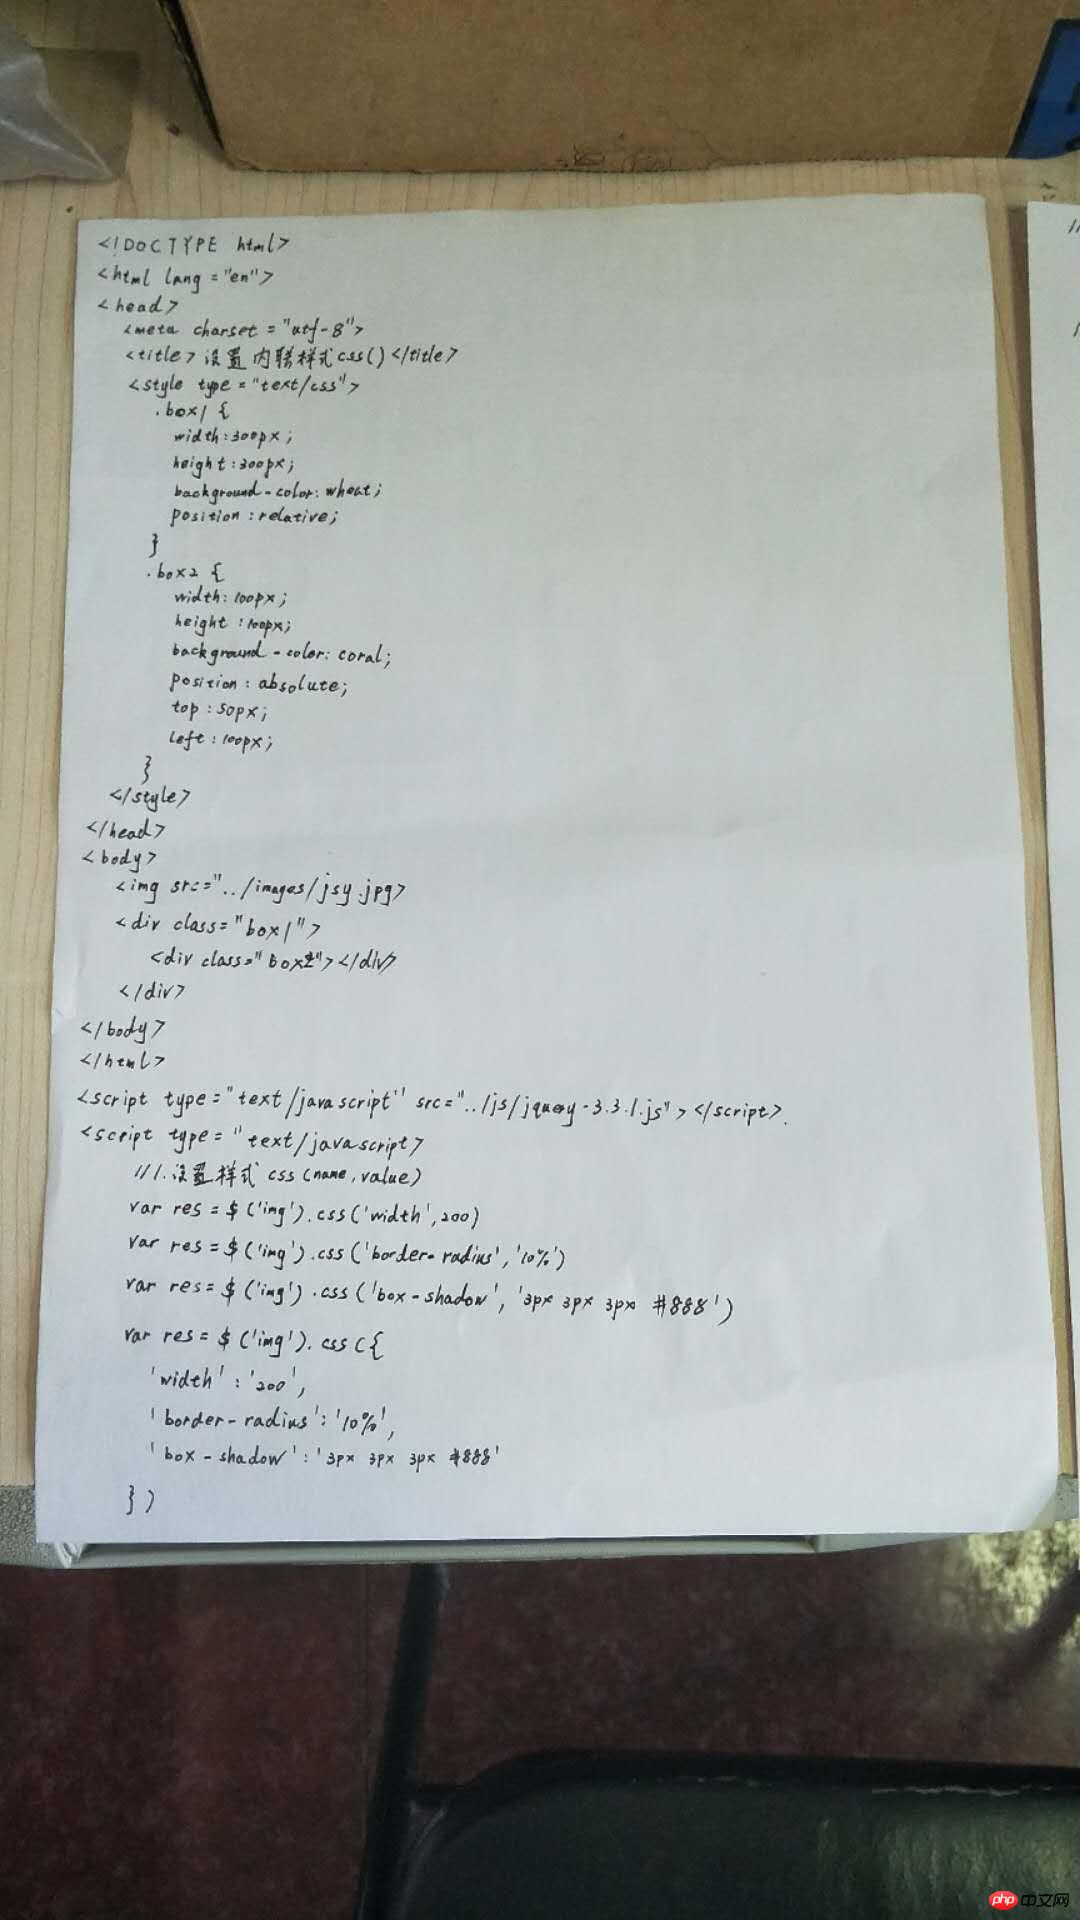 <!DOCTYPE html>
<html lang="en">
<head>
<meta charset="utf-8">
<title>设置内联样式css()</title>
<style type="text/css">
.box1 {
width:300px;
height:300px;
background-color:wheat;
position:relative;
}
.box2 {
width:100px;
height:100px;
background-color:coral;
position:absolute;
top:50px;
left:100px;
}
</style>
</head>
<body>
<img src="../images/jsy.jpg>
<div class="box1">
<div class="box2"></div>
</div>
</body>
</html>
<script type="text/javascript" src="../js/jquery-3.3.1.js"></script>.
<script type="text/javascript>
//1.设置样式css(name,value)
var res=$('img').css('width',200)
var res=$('img').css('border-radius','10%')
var res=$('img').css('box-shadow','3px 3px 3px #888')
var res=$('img').css({
'width':'200',
'border-radius':'10%',
'box-shadow':'3px 3px 3px #888'
})
php中文网